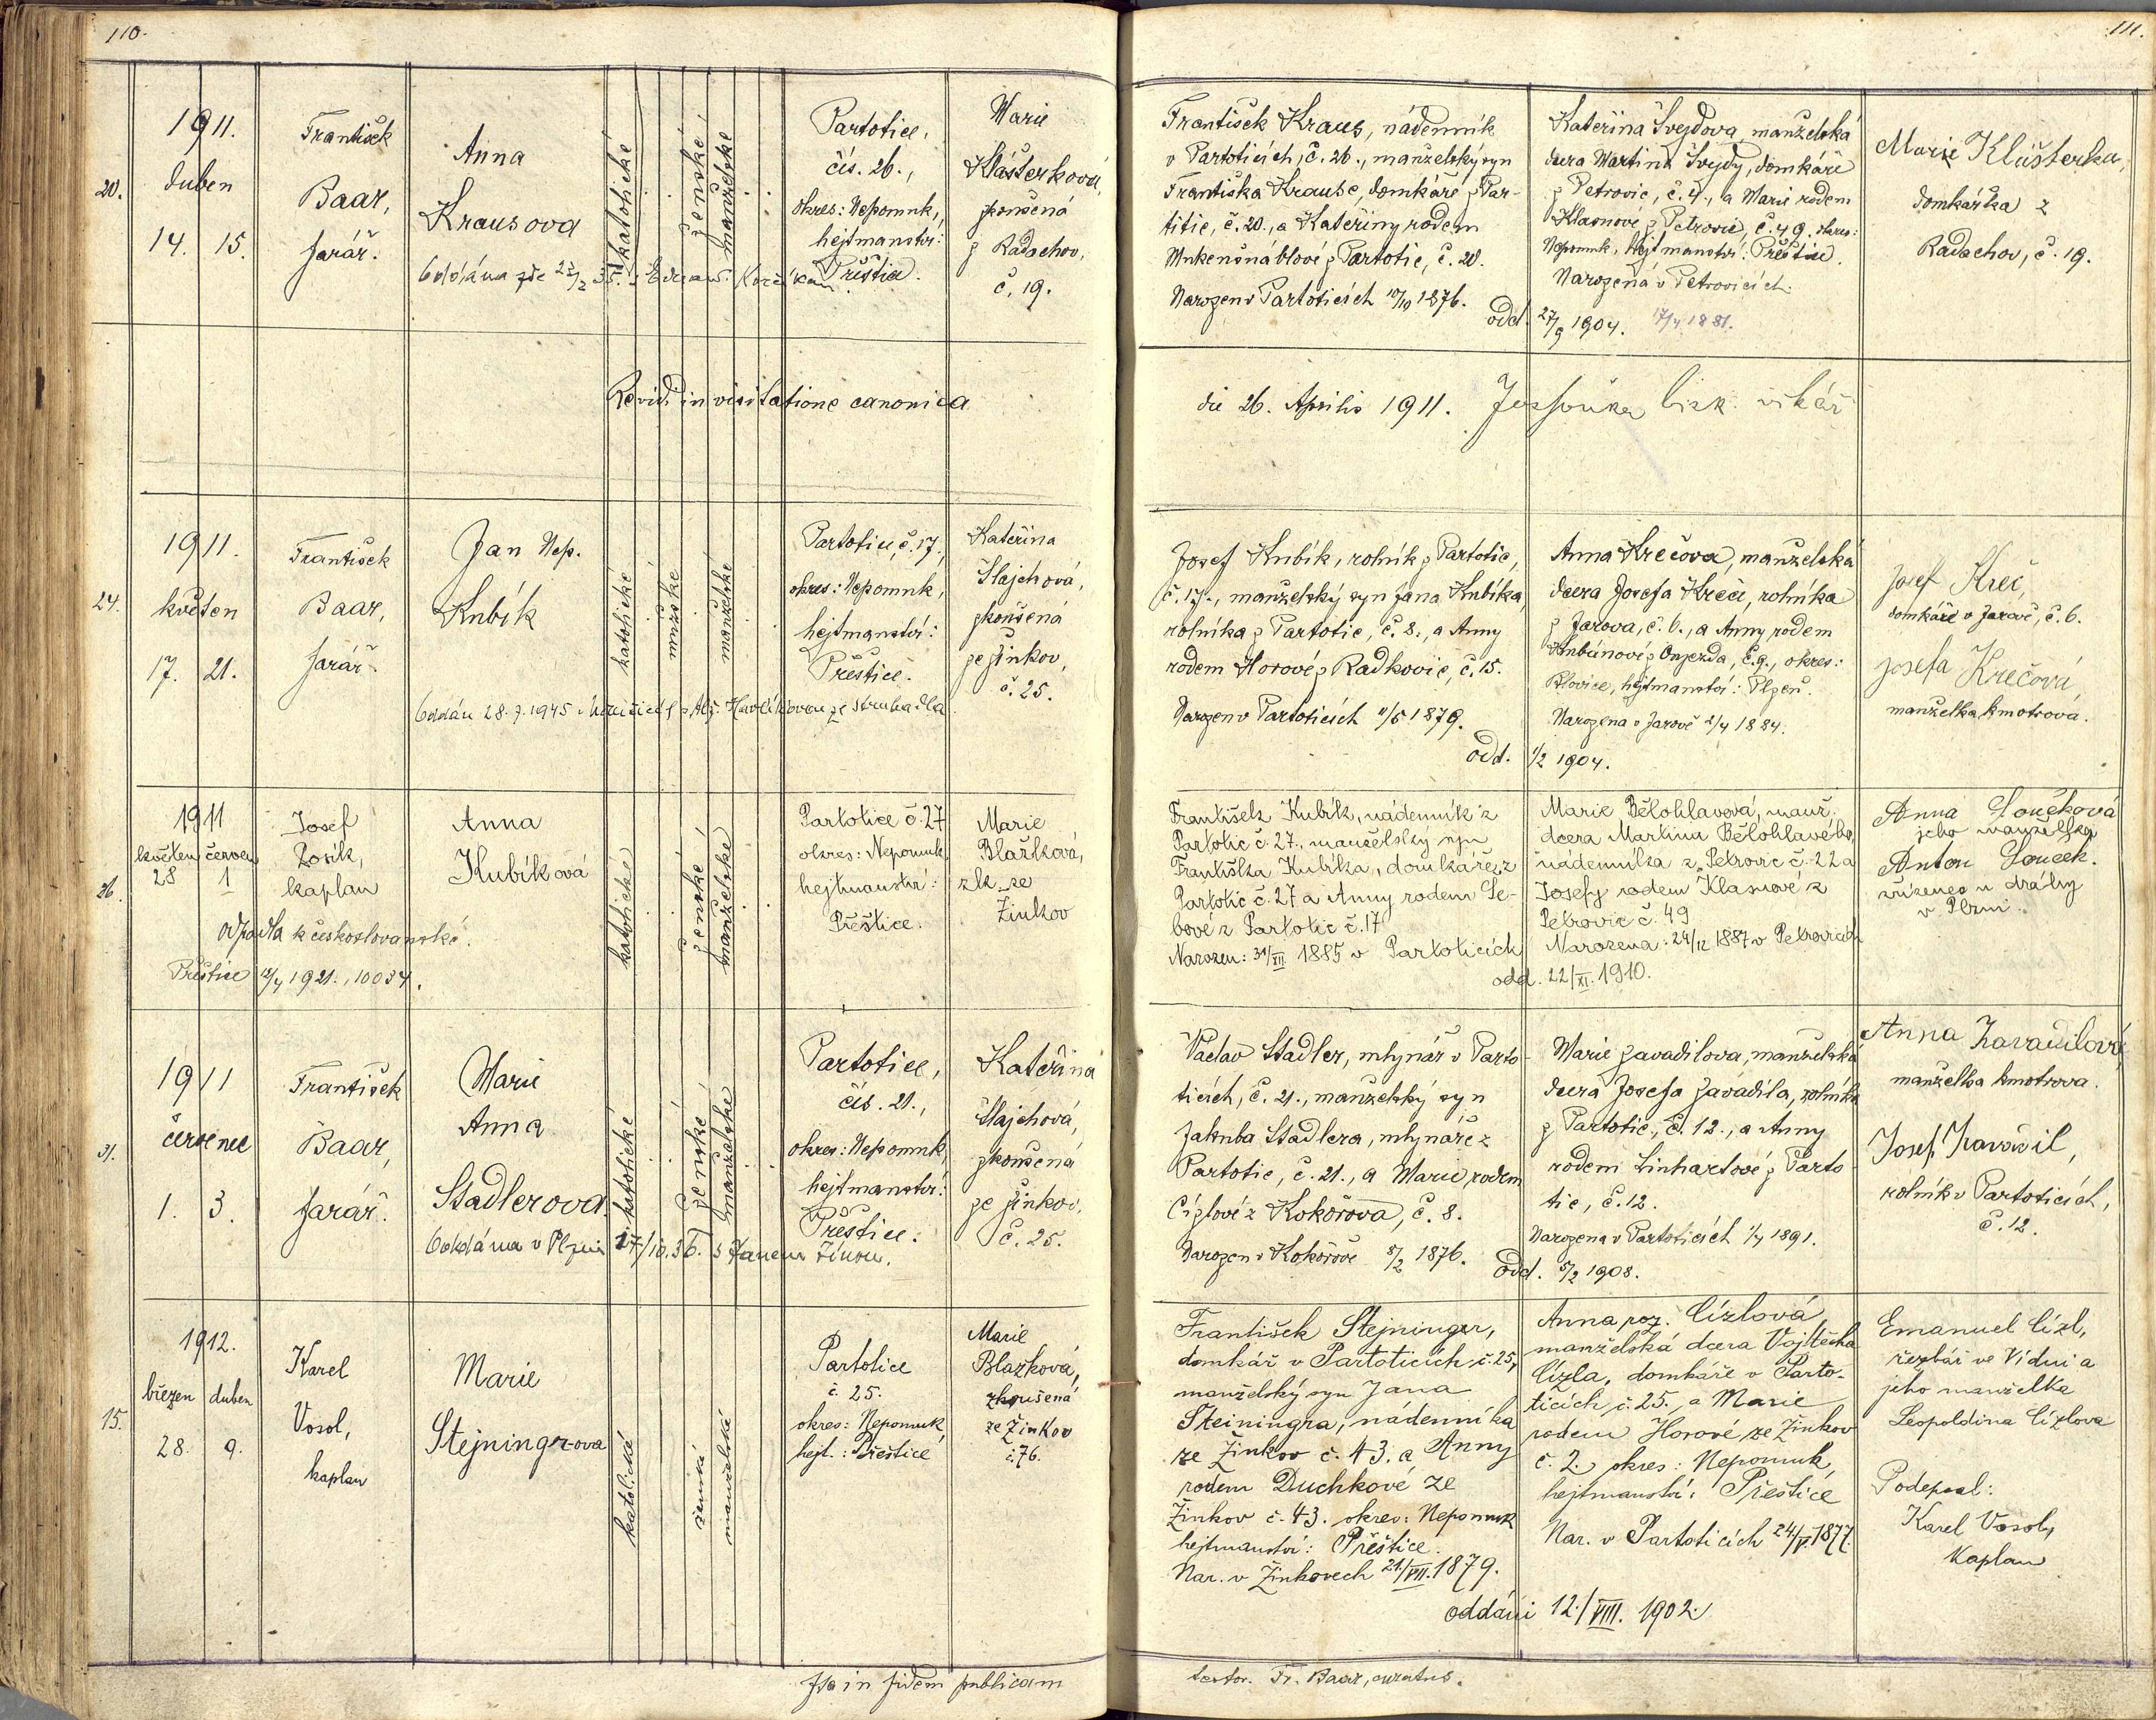 110.
111.
20.
1911.
duben
14. 15.
František
Baar,
farář.
Anna
Krausova
katolické
ženské
manželské
Partotice,
čís. 26.,
okres: Nepomuk,
hejtmanství:
Přeštice.
Marie
Klášterková,
zkoušená
z Radochov,
č. 19.
František Kraus, nádenník
v Partoticích, č. 26., manželský syn
Františka Krause, domkáře z Par-
titic, č. 20., a Kateřiny rodem
z Partotic, č. 20.
Narozen v Partoticích 10/10 1876.
Kateřina Švejdova, manželská
dcera Martina Švejdy, domkáře
z Petrovic, č. 4., a Marie rodem
Klasnové z Petrovic, č. 49. okres:
Nepomuk, hejtmanství: Přeštice.
Narozená v Petrovicích.
odd. 27/9 1904. 17/4 1881.
Marie Klášterka,
domkářka z
Radochov, č. 19.
Oddána zde
Revidi in visitatione canonica
die 26. Aprilis 1911. bisk. vikář
24.
1911.
květen
17. 21.
František
Baar,
farář.
Jan Nep.
Kubík
katolické
mužské
manželské
Partotice, č. 17.,
okres: Nepomuk,
hejtmanství:
Přeštice.
Kateřina
Šlajchová,
zkoušená
ze Žinkov,
č. 25.
Oddán 28.7.1945 Havlíkovou ze Struhadla
Josef Kubík, rolník z Partotic,
č. 17., manželský syn Jana Kubíka,
rolníka z Partotic, č. 8., a Anny
rodem Horové z Radkovic, č. 15.
Narozen v Partoticích 11/5 1879.
Anna Krečova, manželská
dcera Josefa Kreče, rolníka
z Jarova, č. 6., a Anny rodem
z Oujezda, č. 9., okres:
Blovice, hejtmanství: Plzeň.
Narozena v Jarově 2/4 1884.
odd. 1/2 1904.
Josef Kreč,
domkáře v Jarově, č. 6.
Josefa Krečová,
manželka kmotrova.
26.
1911
květen červen
28 1
Josef
Rosík,
kaplan
Anna
Kubíková
katolické
ženské
manželské
Partotice č. 27
okres: Nepomuk
hejtmanství:
Přeštice.
Marie
Blažková,
zk. ze
Žinkov
odpadla k československé.
Přeštice 12/4 1921., 10034.
František Kubík, nádenník z
Partotic č. 27., manželský syn
Františka Kubíka, domkáře z
Partotic č. 27 a Anny rodem Še-
bové z Partotic č. 17
Narozen: 31/XII 1885 v Partoticích
Marie Bělohlavová, manž.
dcera Martina Bělohlavého,
nádenníka z Petrovic č. 22 a
Josefy rodem Klasnové z
Petrovic č. 49
Narozena: 24/12 1887 v Petrovicích
odd. 22/XI. 1910.
Anna Loučková
jeho manželka
Anton Louček.
zřízenec u dráhy
v Plzni.
31.
1911
červenec
1. 3.
František
Baar,
farář.
Marie
Anna
Stadlerova.
katolické
ženské
manželské
Partotice,
čís. 21.,
okres: Nepomuk,
hejtmanství:
Přeštice.
Kateřina
Šlajchová,
zkoušená
ze Žinkov,
č. 25.
Oddána v Plzni 17/10.36. s Janem
Václav Stadler, mlynář v Parto-
ticích, č. 21., manželský syn
Jakuba Stadlera, mlynáře z
Partotic, č. 21., a Marie, rodem
Cízlové z Kokořova, č. 8.
Narozen v Kokořově 5/2 1876.
Marie Zavadilova, manželská
dcera Josefa Zavadila, rolníka
z Partotic, č. 12., a Anny
rodem Linhartové z Parto-
tic, č. 12.
Narozena v Partoticích 1/4 1891.
Odd. 5/2 1908.
Anna Zavadilová,
manželka kmotrova.
Josef Zavadil,
rolník v Partoticích,
č. 12.
15.
1912.
březen duben
28. 9.
Karel
Vosol,
kaplan
Marie
Stejningrova
katolická
ženská
manželská
Partotice
č. 25.
okres: Nepomuk,
hejt.: Přeštice
Marie
Blažková,
zkoušená
ze Žinkov
č. 76.
František Stejninger,
domkář v Partoticích č. 25,
manželský syn Jana
Steiningra, nádenníka
ze Žinkov č. 43. a Anny
rodem Duchkové ze
Žinkov č. 43. okres: Nepomuk
hejtmanství: Přeštice.
Nar. v Žinkovech 21./VII. 1879.
Anna roz. Cízlová
manželská dcera Vojtěcha
Cízla, domkáře v Parto-
ticích č. 25., a Marie
rodem Horové ze Žinkov
č. 2. okres: Nepomuk,
hejtmanství: Přeštice
Nar. v Partoticích 24/V. 1877.
oddáni 12./VIII. 1902.
Emanuel Cízl,
řezbář ve Vídni a
jeho manželka
Leopoldina Cízlova
Podepsal:
Karel Vosol,
kaplan
Ita in fidem publicam
testor. Fr. Baar, curatus.